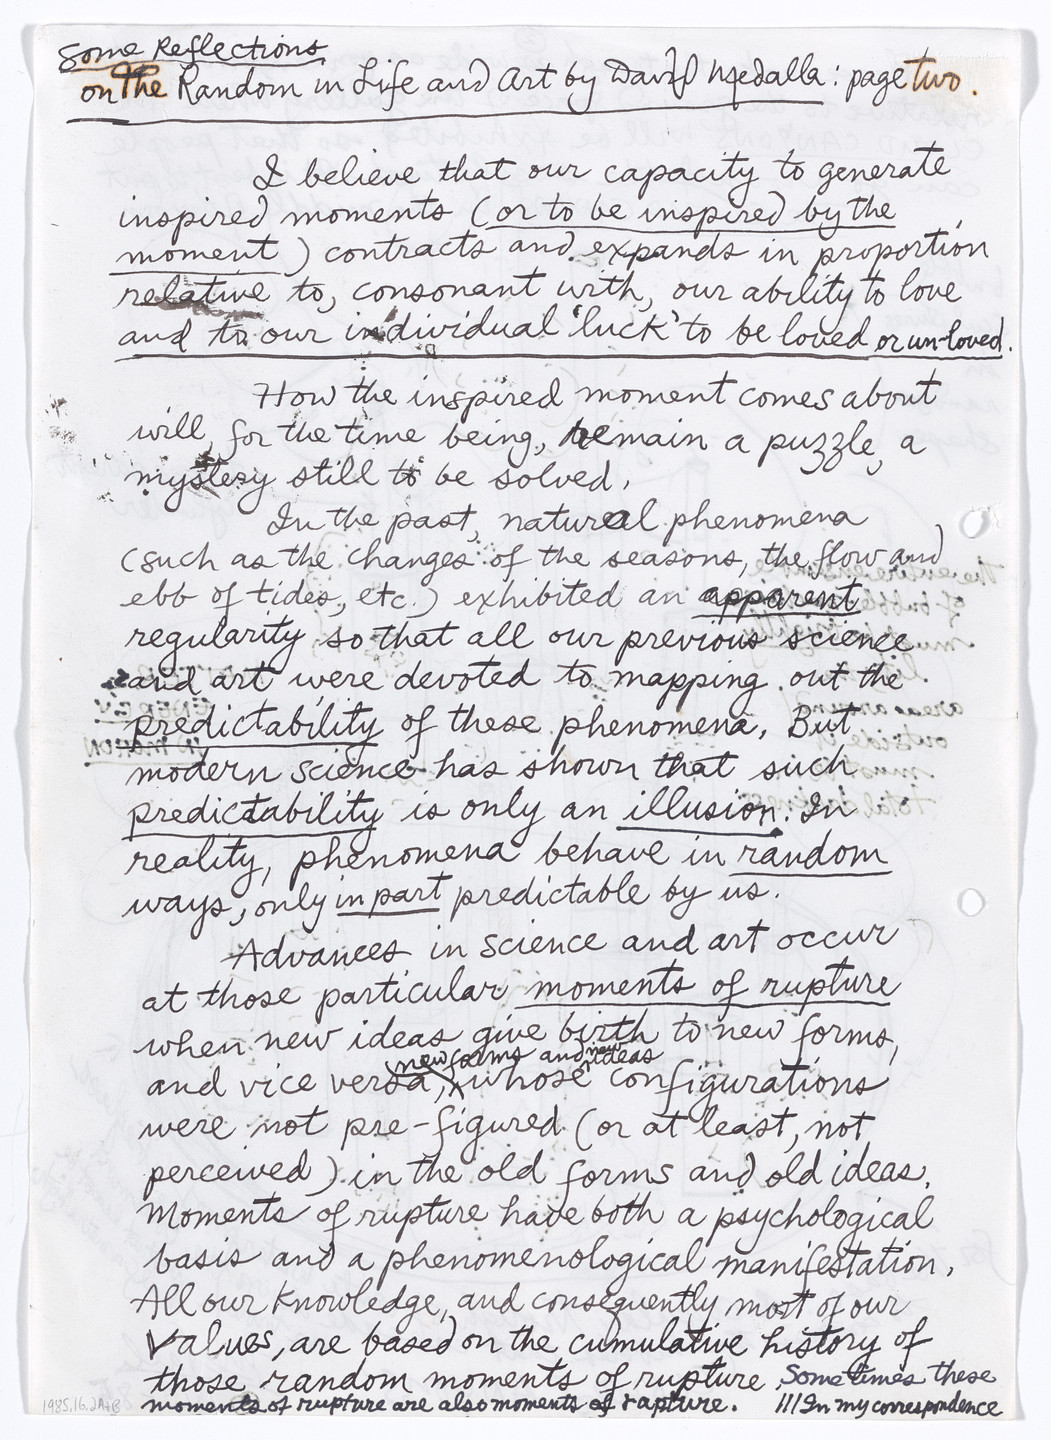 Some Reflections
on the Random in Life and Art by David Medalla : page two.
I believe that our capacity to generate
inspired moments (or to be inspired by the
moment) contracts and expands in proportion
relative to, consonant with, our ability to love
and to our individual 'luck' to be loved or un-loved.
How the inspired moment comes about
will, for the time being, remain a puzzle, a
mystery still to be solved.
In the past, natural phenomena
(such as the changes of the seasons, the flow and
ebb of tides, etc.) exhibited an apparent
regularity so that all our previous science
and art were devoted to mapping out the
predictability of these phenomena. But
modern science has shown that such
predictability is only an illusion. In
reality, phenomena behave in random
ways, only in part predictable by us.
Advances in science and art occur
at those particular moments of rupture
when new ideas give birth to new forms,
new forms and new ideas
and vice versa, whose configurations
were not pre-figured (or at least, not
perceived) in the old forms and old ideas.
Moments of rupture have both a psychological
basis and a phenomenological manifestation.
All our knowledge, and consequently most of our
values, are based on the cumulative history of
those random moments of rupture. Sometimes these
moments of rupture are also moments of rapture. ///In my correspondence
1985.16.2A+B